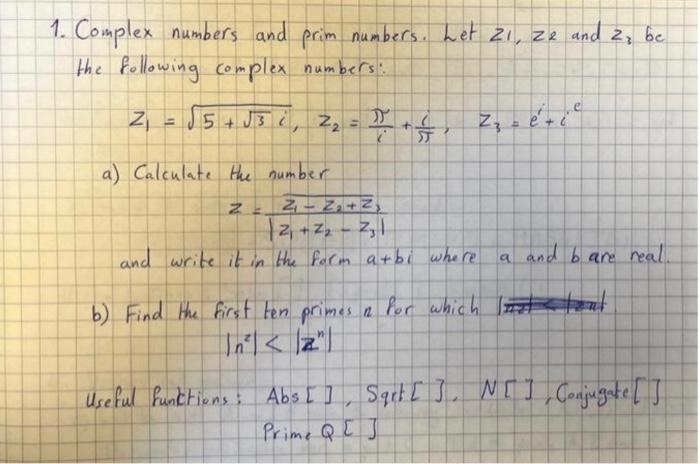 1. Complex numbers and prim numbers. Let z1, z2 and z3 be
the following complex numbers:
z1 = √(5 + √3 i), z2 = π/i + i/π, z3 = e^i + i^e
a) Calculate the number
z = \overline{z1 - z2 + z3} / |z1 + z2 - z3|
and write it in the form a+bi where a and b are real.
b) Find the first ten primes n for which
|n²| < |z^n|
Useful functions: Abs[ ], Sqrt[ ], N[ ], Conjugate[ ]
PrimeQ[ ]